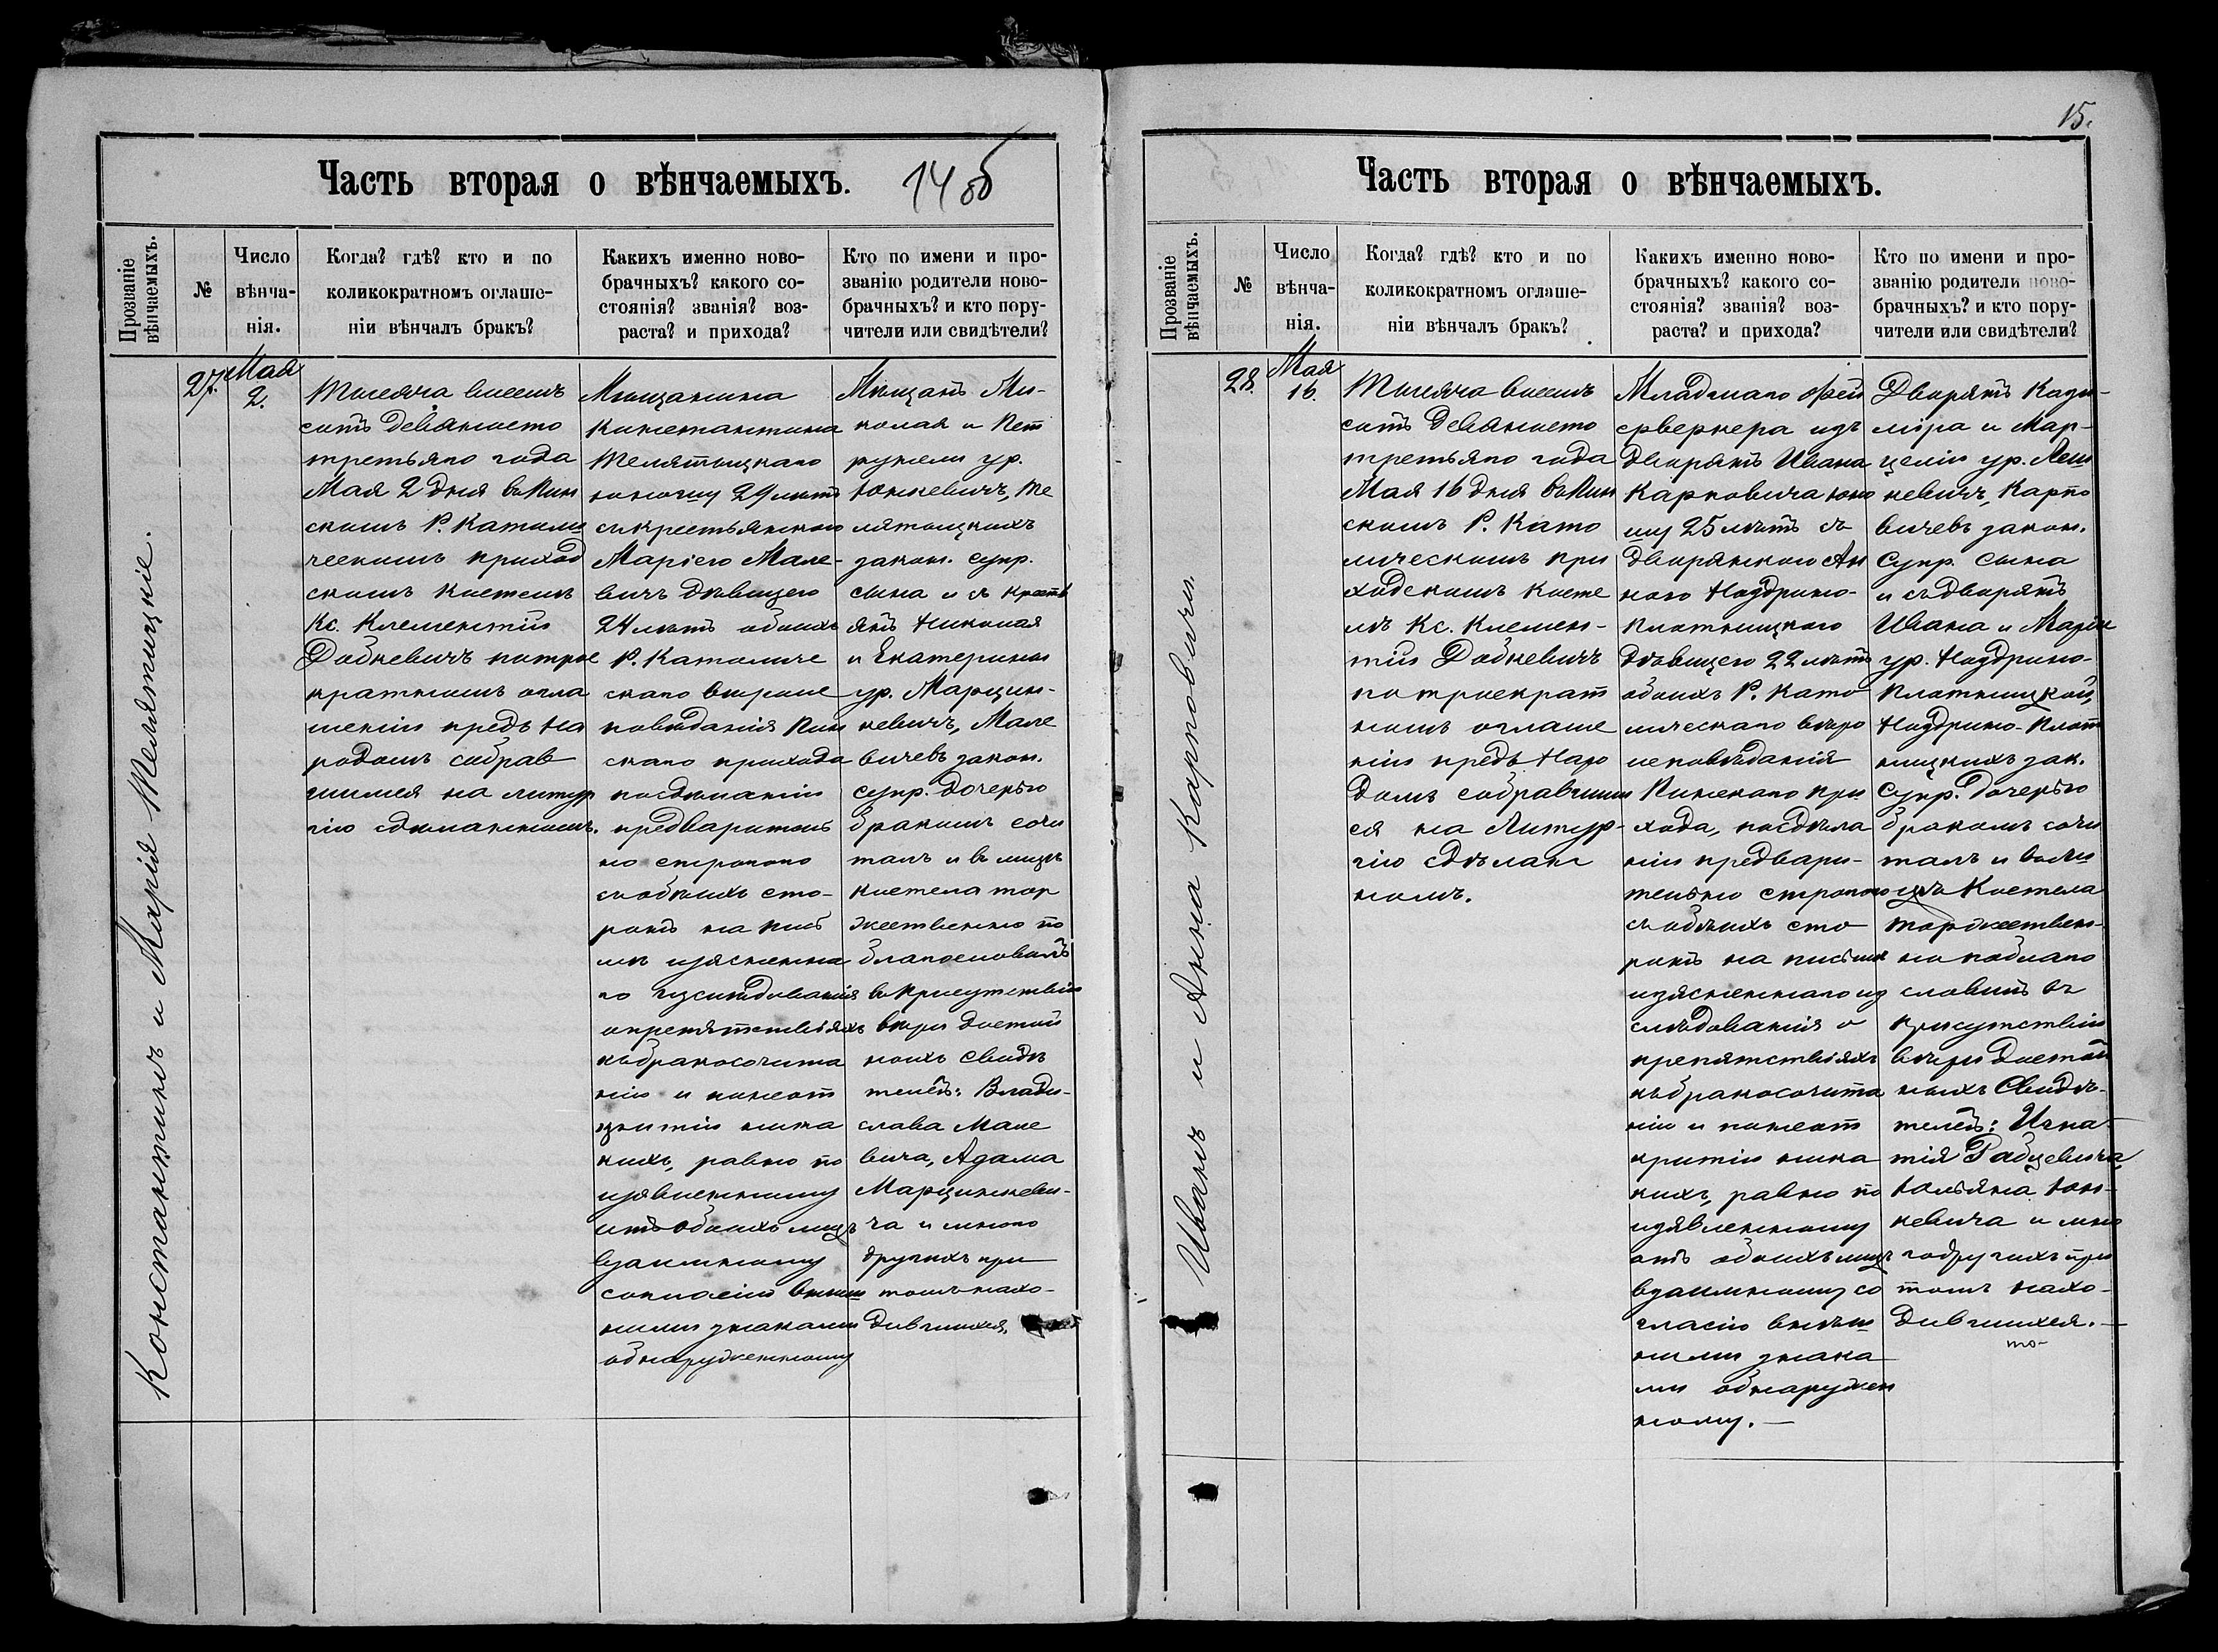 Часть вторая о вѣнчаемыхъ.
14 об
Прозваніе вѣнчаемыхъ.
№
Число
вѣнча-
нія.
Когда? гдѣ? кто и по
коликократномъ оглаше-
ніи вѣнчалъ бракъ?
Какихъ именно ново-
брачныхъ? какого со-
стоянія? званія? воз-
раста? и прихода?
Кто по имени и про-
званію родители ново-
брачныхъ? и кто пору-
чители или свидѣтели?
Константинъ и Марія Телятицкіе.
27.
Мая
2.
Тысяча восемь
сотъ девяносто
третьяго года
Мая 2 дня въ Пин
скомъ Р. Католи
ческомъ приход
скомъ костелѣ
Кс. Клементій
Добкевичъ по трое
кратномъ огла
шеніи предъ на
родомъ собрав
шимся на литур
гію сдѣланномъ.
Мѣщанина
Константина
Телятицкаго
юношу 29 лѣтъ
съ крестьянкою
Маріею Мале-
вичъ дѣвицею
24 лѣтъ обоихъ
Р. Католиче
скаго вѣроис
повѣданія Пин
скаго прихода
по сдѣланіи
предварительно
но строгаго
съ обѣихъ сто-
ронъ на пись
мѣ изясненна
го изслѣдованія
о препятствіяхъ
къ бракосочета
нію и по неот
крытіи ника
кихъ, равно по
изявленному
отъ обоихъ лицъ
взаимному
согласію внѣш
ними знаками
обнаруженному
Мѣщанъ Ми-
колая и Пет
рунели ур.
Юхневичъ, Те
лятицкихъ
закон. супр.
сына и съ крестъ
янъ Николая
и Екатерины
ур. Марцин-
кевичъ, Мале
вичевъ закон.
супр. дочерью
бракомъ соче
талъ и въ лицѣ
костела тор
жественно по
благословилъ
въ присутствіи
вѣры достой
ныхъ свидѣ
телей: Влади-
слава Мале
вича, Адама
Марцинкеви-
ча и много
другихъ при
томъ нахо-
дившихся.
15.
Часть вторая о вѣнчаемыхъ.
Прозваніе вѣнчаемыхъ.
№
Число
вѣнча-
нія.
Когда? гдѣ? кто и по
коликократномъ оглаше-
ніи вѣнчалъ бракъ?
Какихъ именно ново-
брачныхъ? какого со-
стоянія? званія? воз-
раста? и прихода?
Кто по имени и про-
званію родители ново-
брачныхъ? и кто пору-
чители или свидѣтели?
Иванъ и Анна Карповичи.
28.
Мая
16.
Тысяча восемь
сотъ девяносто
третьяго года
Мая 16 дня въ Пин
скомъ Р. Като
лическомъ при
ходскомъ косте
лѣ Кс. Клемен-
тій Добкевичъ
по троекрат
номъ оглаше
ніи предъ наро
домъ собравшим
ся на Литур-
гію сдѣлан
номъ.
Младшаго фей
ерверкера изъ
дворянъ Ивана
Карповича юно
шу 25 лѣтъ съ
дворянкою Ан
ною Ноздрино-
Плотницкою
дѣвицею 22 лѣтъ
обоихъ Р. Като
лическаго вѣро
исповѣданія
Пинскаго при
хода, по сдѣла
ніи предвари-
тельно строгаго
съ обѣихъ сто
ронъ на письмѣ
изясненнаго из
слѣдованія о
препятствіяхъ
къ бракосочета
нію и по неот
крытіи ника
кихъ, равно по
изявленному
отъ обоихъ лицъ
взаимному со
гласію внѣш
ними знака
ми обнаружен
ному.—
Дворянъ Кази-
міра и Мар-
целіи ур.
невичъ, Карпо
вичевъ закон.
супр. сына
и съ дворянъ
Ивана и Маріи
ур. Ноздрино-
Плотницкой,
Ноздрино-Плот
ницкихъ зак.
супр. дочерью
бракомъ соче
талъ и въ ли
цѣ Костела
торжествен-
но поблаго
словилъ въ
присутствіи
вѣры достой
ныхъ Свидѣ-
телей: Игна-
тія Рабцевича,
Юльяна Юх-
невича и мно
го другихъ при
томъ нахо-
дившихся.—